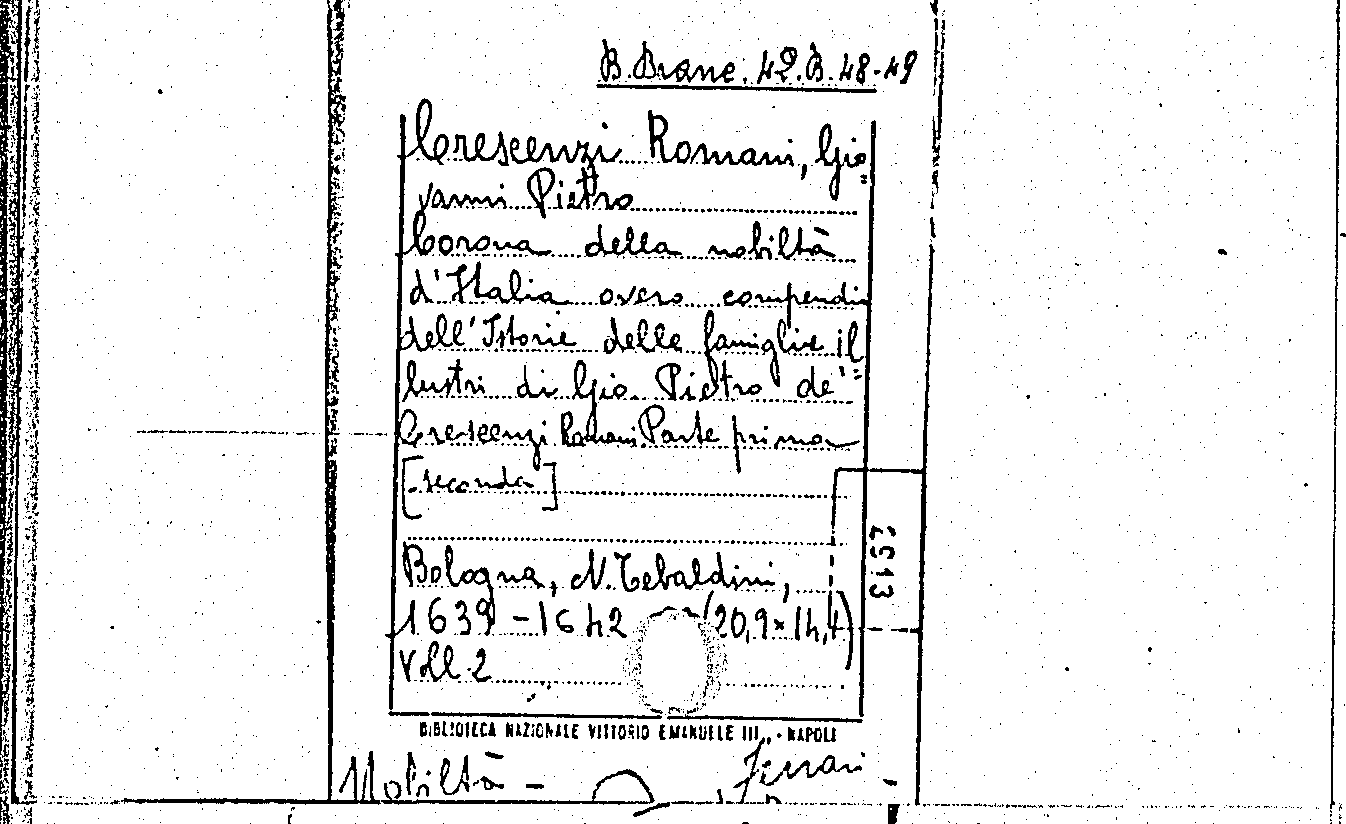 B. Branc. 42.B.48-49
Crescenzi Romani, Gio=
vanni Pietro
Corona della nobiltà
d'Italia overo compendio
dell'Istorie delle famiglie il=
lustri di Gio. Pietro de'
Crescenzi Romani Parte prima
[-seconda]
Bologna, N. Tebaldini,
1639-1642 (20,9×14,1)
Voll. 2
2513
BIBLIOTECA NAZIONALE VITTORIO EMANUELE III„ - NAPOLI
Nobiltà - Ferrari -